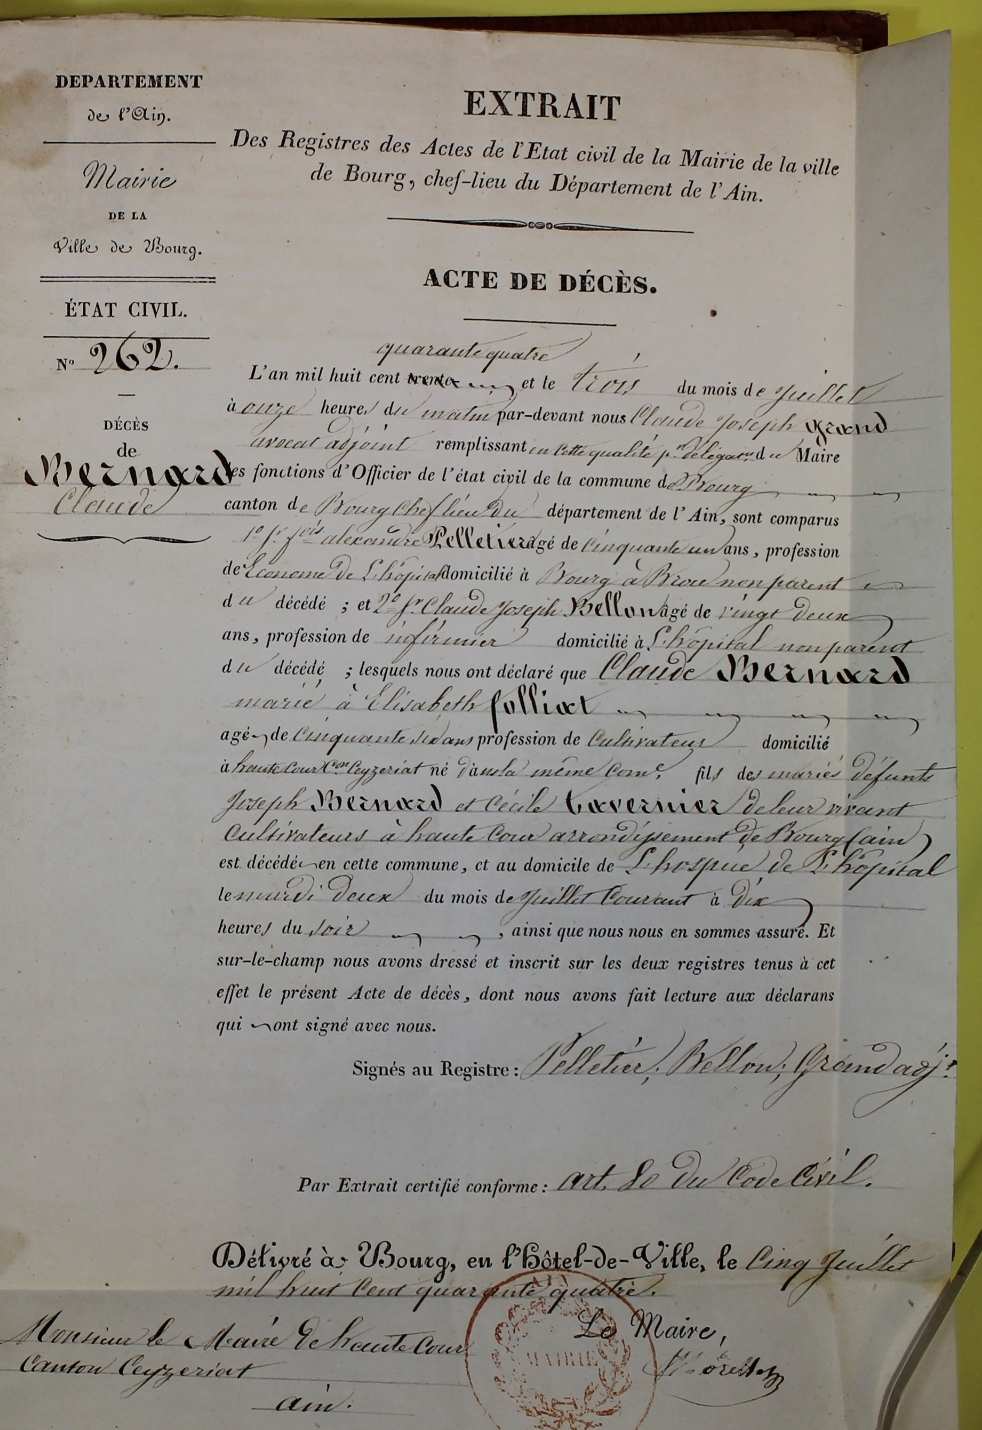 DEPARTEMENT
de l'Ain.
Mairie
DE LA
Ville de Bourg.
ÉTAT CIVIL.
N° 262.
DÉCÈS
de
Bernard
Claude
EXTRAIT
Des Registres des Actes de l'Etat civil de la Mairie de la ville
de Bourg, chef-lieu du Département de l'Ain.
ACTE DE DÉCÈS.
quarante quatre
L'an mil huit cent trente et le trois du mois de juillet
à onze heures du matin par-devant nous Claude Joseph Grand
avocat adjoint remplissant en cette qualité pr délégaon du Maire
les fonctions d'Officier de l'état civil de la commune de Bourg
canton de Bourg Chef lieu du département de l'Ain, sont comparus
1° Sr fois alexandre Pelletier agé de cinquante un ans, profession
de Econome de L'hôpital domicilié à Bourg à Brou non parent
du décédé ; et 2° Sr Claude Joseph Bellon agé de vingt deux
ans, profession de infirmier domicilié à L'hôpital non parent
du décédé ; lesquels nous ont déclaré que Claude Bernard
marié à Elisabeth folliat
agé de cinquante six ans profession de cultivateur domicilié
à haute Cour Con Ceyzeriat né dans la même Come fils des mariés défunts
Joseph Bernard et Cécile tavernier de leur vivant
cultivateurs à haute Cour arrondissement de Bourg (ain)
est décédé en cette commune, et au domicile de L'hospice de L'hôpital
le mardi deux du mois de juillet courant à dix
heures du soir , ainsi que nous nous en sommes assuré. Et
sur-le-champ nous avons dressé et inscrit sur les deux registres tenus à cet
effet le présent Acte de décès, dont nous avons fait lecture aux déclarans
qui ont signé avec nous.
Signés au Registre : Pelletier, Bellon, Grand adjt
Par Extrait certifié conforme : art. 80 du Code Civil.
Délivré à Bourg, en l'Hôtel-de-Ville, le cinq juillet
mil huit cent quarante quatre.
Le Maire,
Monsieur le Maire de haute Cour
Canton Ceyzeriat
ain.
AIN
MAIRIE